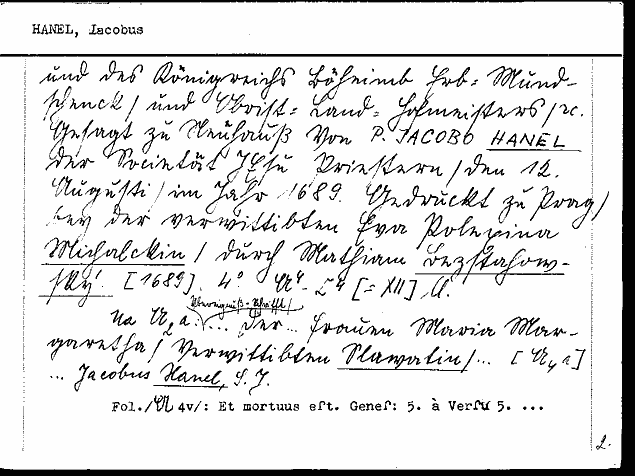 HANEL, Jacobus
und des Königreichs Böheimb Erb= Mund-
schenck / und Obrist= Land= Hofmeisters / ⁊c.
Gesagt zu Neuhauß Von P. JACOBO HANEL
der Societät JEsu Priestern / den 12.
Augusti / im Jahr 1689. Gedruckt zu Prag /
bey der verwittibten Eva Polexina
Michalckin / durch Mathiam Bezstahow-
sky. [1689]. 4° A⁴- [= XII] ll.
Na A₂a: ... Der ... Frauen Maria Mar-
garetha / Verwittibten Slawatin / ... [A₄a]
... Jacobus Hanel, S. J.
Fol./A 4v/: Et mortuus eſt. Geneſ: 5. à Verſu 5. ...
2.